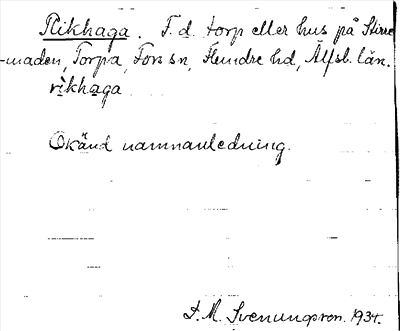 Rikhaga. F. d. torp eller hus på Stirre
-maden, Torpa, Fors sn, Flundre hd, Älfsb. län.
rìkhaga
Okänd namnanledning.
S. M. Svenungsson. 1934.